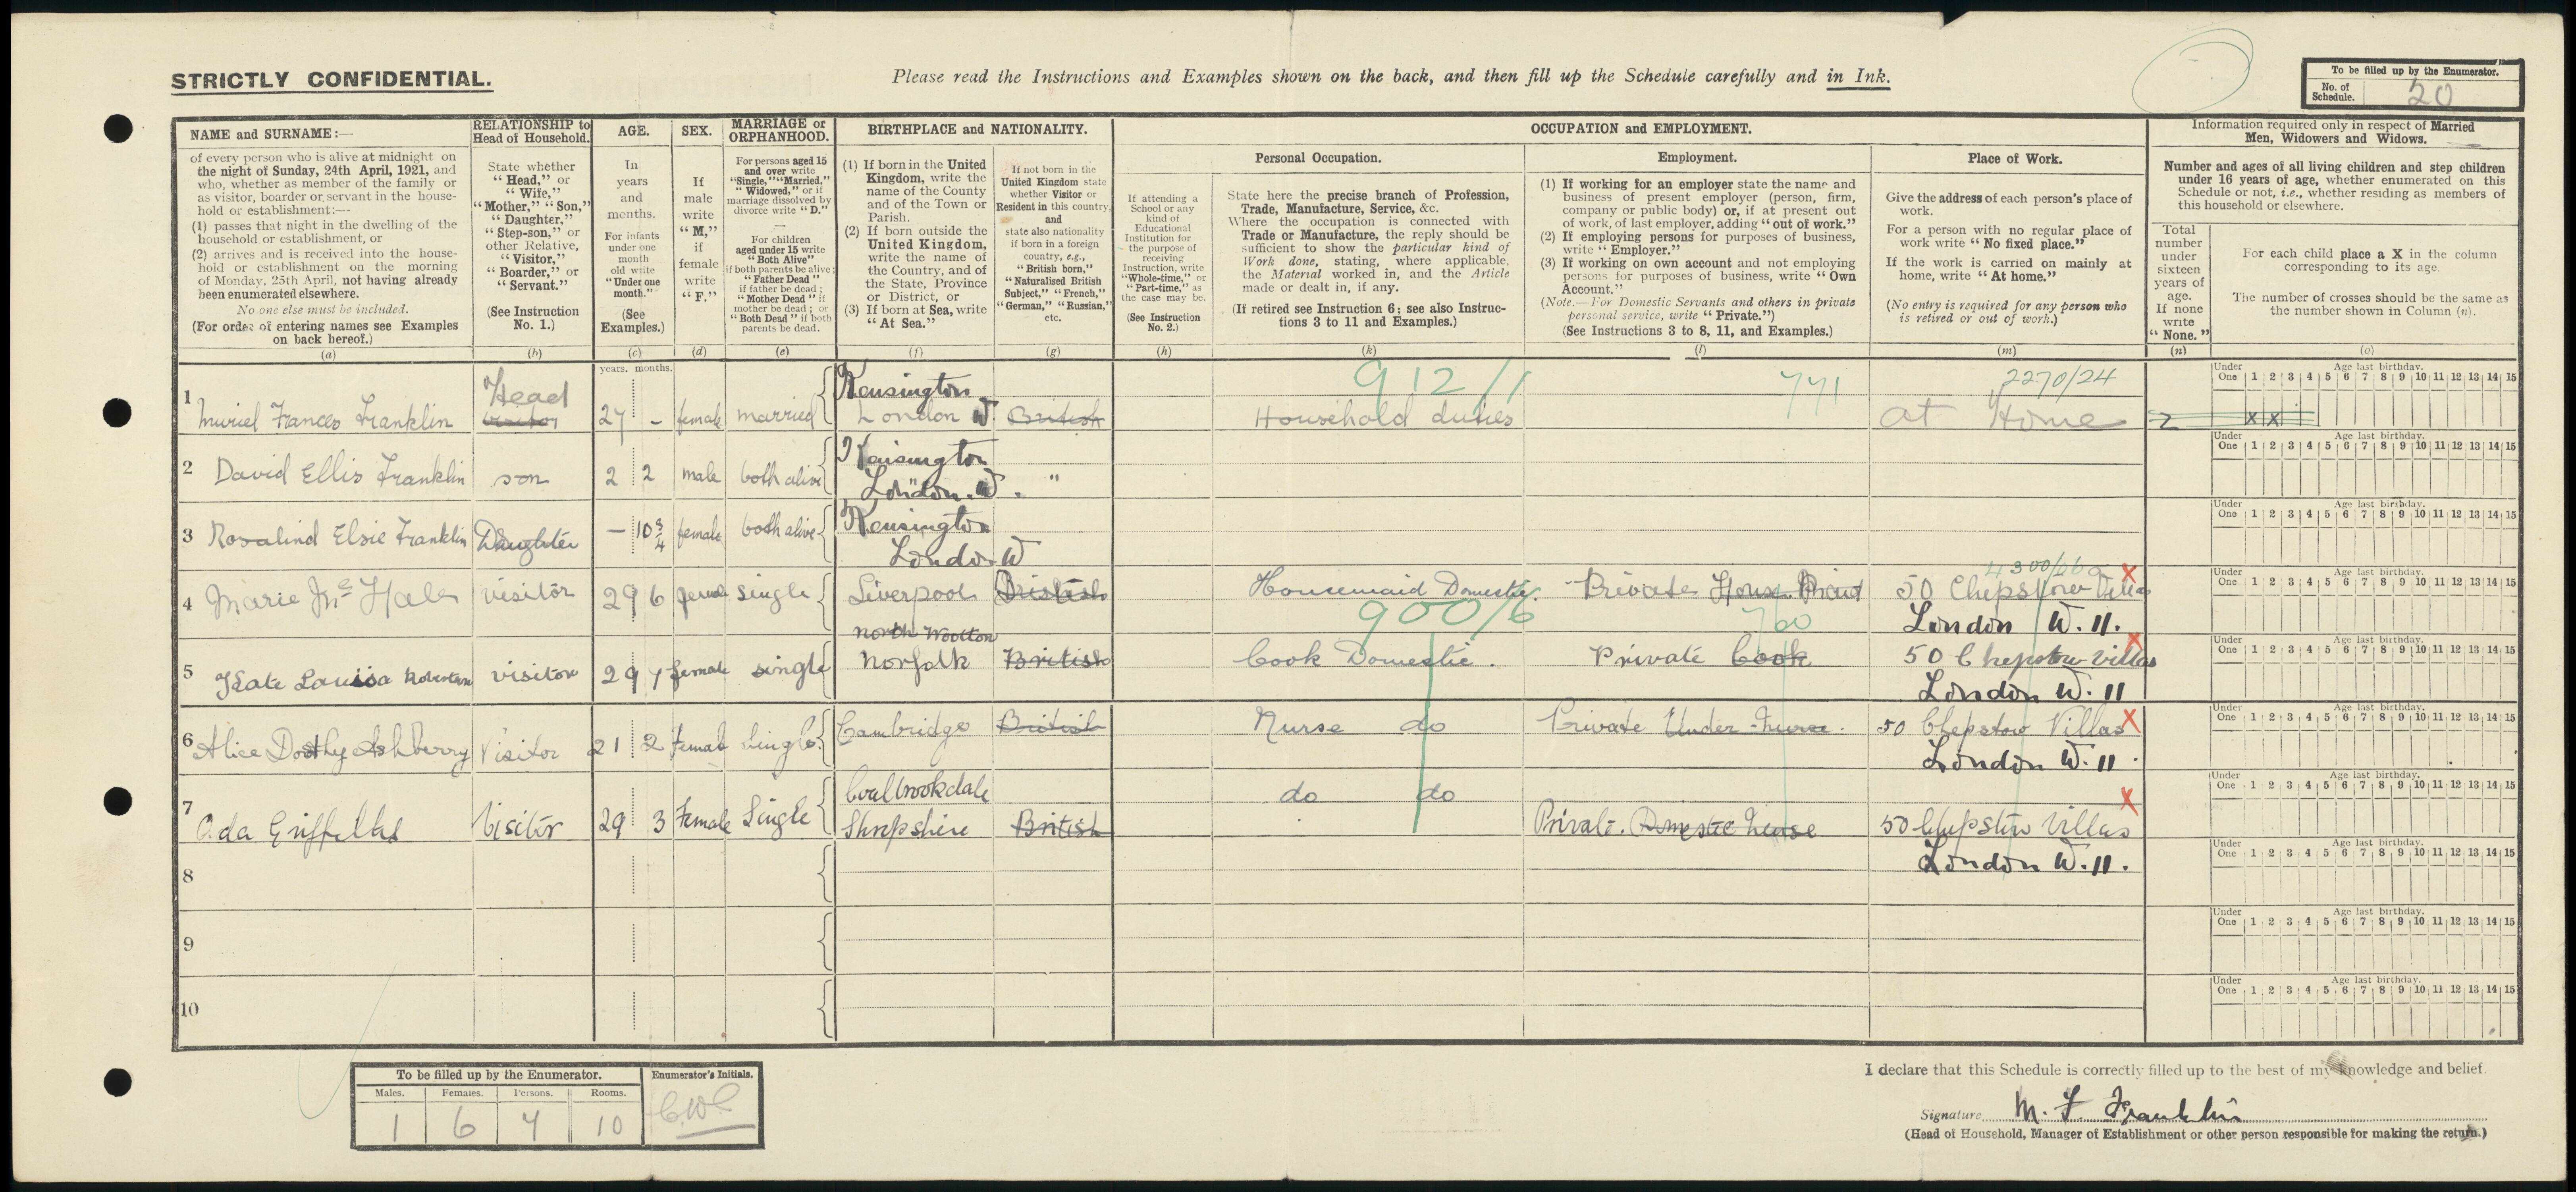 STRICTLY CONFIDENTIAL.
Please read the Instructions and Examples shown on the back, and then fill up the Schedule carefully and in Ink.
To be filled up by the Enumerator.
No. of Schedule. 20
NAME and SURNAME:—
of every person who is alive at midnight on
the night of Sunday, 24th April, 1921, and
who, whether as member of the family or
as visitor, boarder or servant in the house-
hold or establishment:—
(1) passes that night in the dwelling of the
household or establishment, or
(2) arrives and is received into the house-
hold or establishment on the morning
of Monday, 25th April, not having already
been enumerated elsewhere.
No one else must be included.
(For order of entering names see Examples
on back hereof.)
(a)
RELATIONSHIP to
Head of Household.
State whether
"Head," or
"Wife,"
"Mother," "Son,"
"Daughter,"
"Step-son," or
other Relative,
"Visitor,"
"Boarder," or
"Servant."
(See Instruction
No. 1.)
(b)
AGE.
In
years
and
months.
For infants
under one
month
old write
"Under one
month."
(See
Examples.)
(c)
SEX.
If
male
write
"M,"
if
female
write
"F."
(d)
MARRIAGE or
ORPHANHOOD.
For persons aged 15
and over write
"Single," "Married,"
"Widowed," or if
marriage dissolved by
divorce write "D."
—
For children
aged under 15 write
"Both Alive"
if both parents be alive;
"Father Dead"
if father be dead;
"Mother Dead" if
mother be dead; or
"Both Dead" if both
parents be dead.
(e)
BIRTHPLACE and NATIONALITY.
(1) If born in the United
Kingdom, write the
name of the County
and of the Town or
Parish.
(2) If born outside the
United Kingdom,
write the name of
the Country, and of
the State, Province
or District, or
(3) If born at Sea, write
"At Sea."
(f)
If not born in the
United Kingdom state
whether Visitor or
Resident in this country,
and
state also nationality
if born in a foreign
country, e.g.,
"British born,"
"Naturalised British
Subject," "French,"
"German," "Russian,"
etc.
(g)
If attending a
School or any
kind of
Educational
Institution for
the purpose of
receiving
Instruction, write
"Whole-time," or
"Part-time," as
the case may be.
(See Instruction
No. 2.)
(h)
OCCUPATION and EMPLOYMENT.
Personal Occupation.
State here the precise branch of Profession,
Trade, Manufacture, Service, &c.
Where the occupation is connected with
Trade or Manufacture, the reply should be
sufficient to show the particular kind of
Work done, stating, where applicable,
the Material worked in, and the Article
made or dealt in, if any.
(If retired see Instruction 6; see also Instruc-
tions 3 to 11 and Examples.)
(k)
Employment.
(1) If working for an employer state the name and
business of present employer (person, firm,
company or public body) or, if at present out
of work, of last employer, adding "out of work."
(2) If employing persons for purposes of business,
write "Employer."
(3) If working on own account and not employing
persons for purposes of business, write "Own
Account."
(Note.—For Domestic Servants and others in private
personal service, write "Private.")
(See Instructions 3 to 8, 11, and Examples.)
(l)
Place of Work.
Give the address of each person's place of
work.
For a person with no regular place of
work write "No fixed place."
If the work is carried on mainly at
home, write "At home."
(No entry is required for any person who
is retired or out of work.)
(m)
Information required only in respect of Married
Men, Widowers and Widows.
Number and ages of all living children and step children
under 16 years of age, whether enumerated on this
Schedule or not, i.e., whether residing as members of
this household or elsewhere.
Total
number
under
sixteen
years of
age.
If none
write
"None."
(n)
For each child place a X in the column
corresponding to its age.
The number of crosses should be the same as
the number shown in Column (n).
(o)
years. months.
Under One Age last birthday. 1 2 3 4 5 6 7 8 9 10 11 12 13 14 15
Head Kensington 912/1 771 2270/24
1 Muriel Frances Franklin visitor 27 - female married London W. British Household duties at Home 2 X X
Under One Age last birthday. 1 2 3 4 5 6 7 8 9 10 11 12 13 14 15
Kensington
2 David Ellis Franklin son 2 2 male both alive London. W. "
Under One Age last birthday. 1 2 3 4 5 6 7 8 9 10 11 12 13 14 15
Kensington
3 Rosalind Elsie Franklin Daughter — 10 3/4 female both alive London W
Under One Age last birthday. 1 2 3 4 5 6 7 8 9 10 11 12 13 14 15
4 Marie visitor 29 6 female single Liverpool British Housemaid Domestic. Private House 50 Chepstow Villas X
900/6 760 London W. 11.
Under One Age last birthday. 1 2 3 4 5 6 7 8 9 10 11 12 13 14 15
North Wootton
5 Kate Louisa visitor 29 7 female single Norfolk British Cook Domestic. Private Cook 50 Chepstow Villas X
London W. 11
Under One Age last birthday. 1 2 3 4 5 6 7 8 9 10 11 12 13 14 15
6 Alice Dorothy Ashberry Visitor 21 2 Female Single. Cambridge British Nurse do Private Under-Nurse. 50 Chepstow Villas X
London W. 11.
Under One Age last birthday. 1 2 3 4 5 6 7 8 9 10 11 12 13 14 15
Coalbrookdale do do X
7 Ada Griffiths Visitor 29 3 Female Single Shropshire British Private. Domestic Nurse 50 Chepstow Villas
London W. 11.
Under One Age last birthday. 1 2 3 4 5 6 7 8 9 10 11 12 13 14 15
8
Under One Age last birthday. 1 2 3 4 5 6 7 8 9 10 11 12 13 14 15
9
Under One Age last birthday. 1 2 3 4 5 6 7 8 9 10 11 12 13 14 15
10
To be filled up by the Enumerator.
Males. Females. Persons. Rooms.
1 6 7 10
Enumerator's Initials.
I declare that this Schedule is correctly filled up to the best of my knowledge and belief.
Signature M. F Franklin
(Head of Household, Manager of Establishment or other person responsible for making the return.)